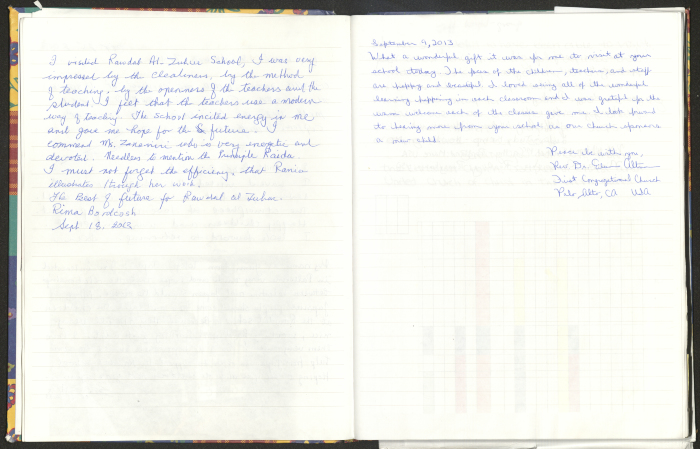 I visited Rawdat Al-Zuhur School, I was very
impressed by the cleanliness, by the method
of teaching, by the openness of the teachers and the
student. I felt that the teachers use a modern
way of teaching. The School excited energy in me
and gave me hope for the future. I
commend Mr. Zananiri who is very energetic and
devoted. Needless to mention the Principle Raida.
I must not forget the efficiency, that Rania
illustrates through her work.
The Best of future for Rawdat al Zuhur.
Rima
Sept 18, 2013
September 4, 2013
What a wonderful gift it was for me to visit at your
school today. The faces of the children, teachers, and staff
are happy and I loved seeing all of the wonderful
learning happening in each classroom and I was grateful for the
warm welcome each of the classes gave me. I look forward
to hearing more from your school as our church sponsors
a new child.
Peace be with you,
Rev. Dr.
First Congregational Church
Palo Alto, CA